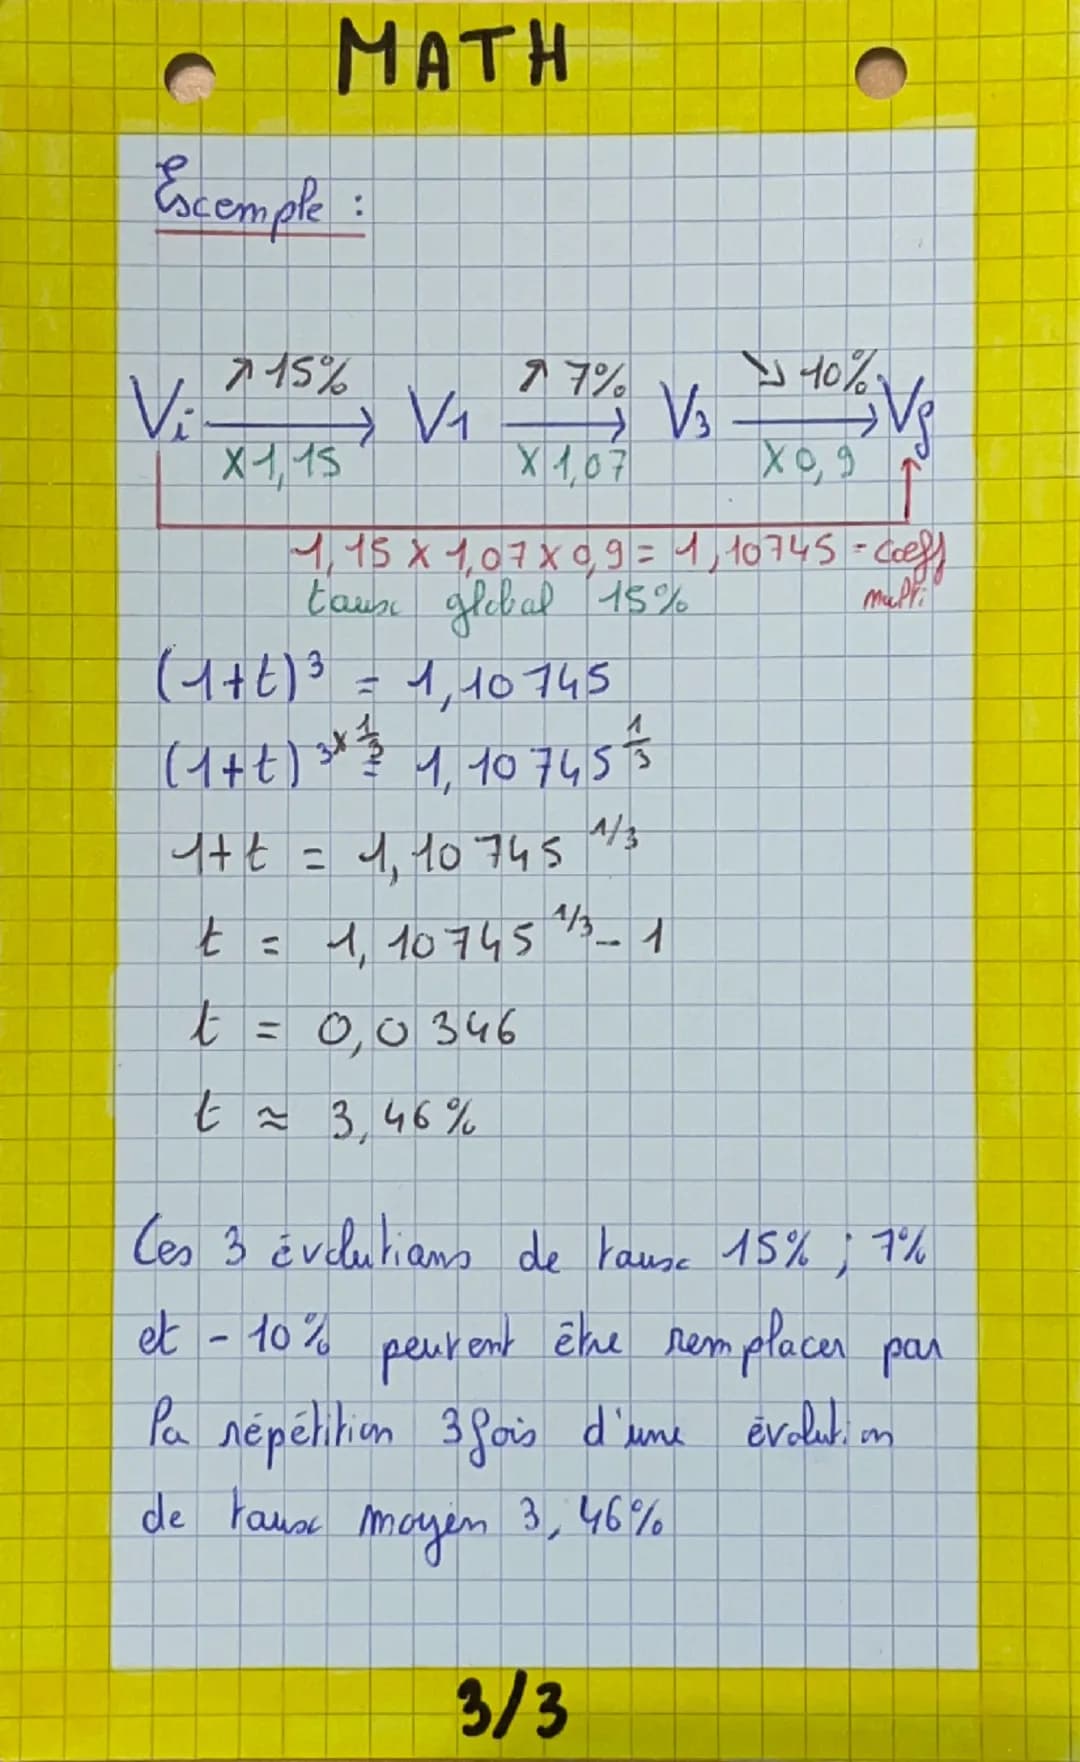 MATH
Exemple :
↗ 15% ↗ 7% ↘ 10%
Vi → V1 → V3 → Vf
×1,15 ×1,07 ×0,9
1,15 × 1,07 × 0,9 = 1,10745 = coeff
taux global 15% multi
(1+t)³ = 1,10745
(1+t)^3×1/3 = 1,10745^1/3
1+t = 1,10745^1/3
t = 1,10745^1/3 - 1
t = 0,0346
t ≈ 3,46%
Ces 3 évolutions de taux 15% ; 7%
et -10% peuvent être remplacer par
la répétition 3 fois d'une évolution
de taux moyen 3,46%
3/3